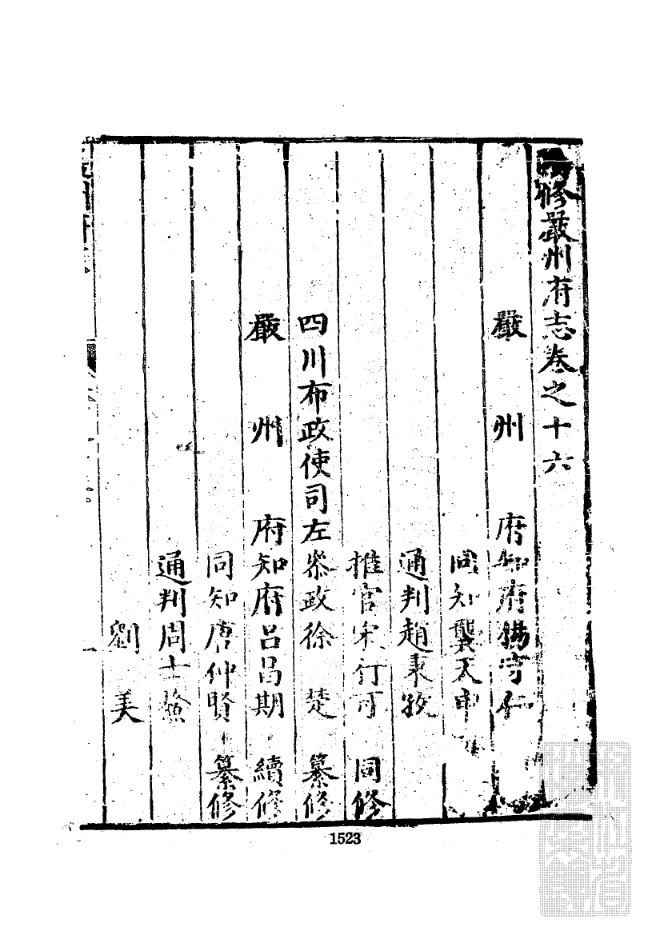 修嚴州府志卷之十六
嚴州府知府楊守仁
同知龔天申
通判趙秉孜
推官宋行可 同修
四川布政使司左叅政徐楚 纂修
嚴州府知府呂昌期 續修
同知唐仲賢 纂修
通判周士
劉美
1523